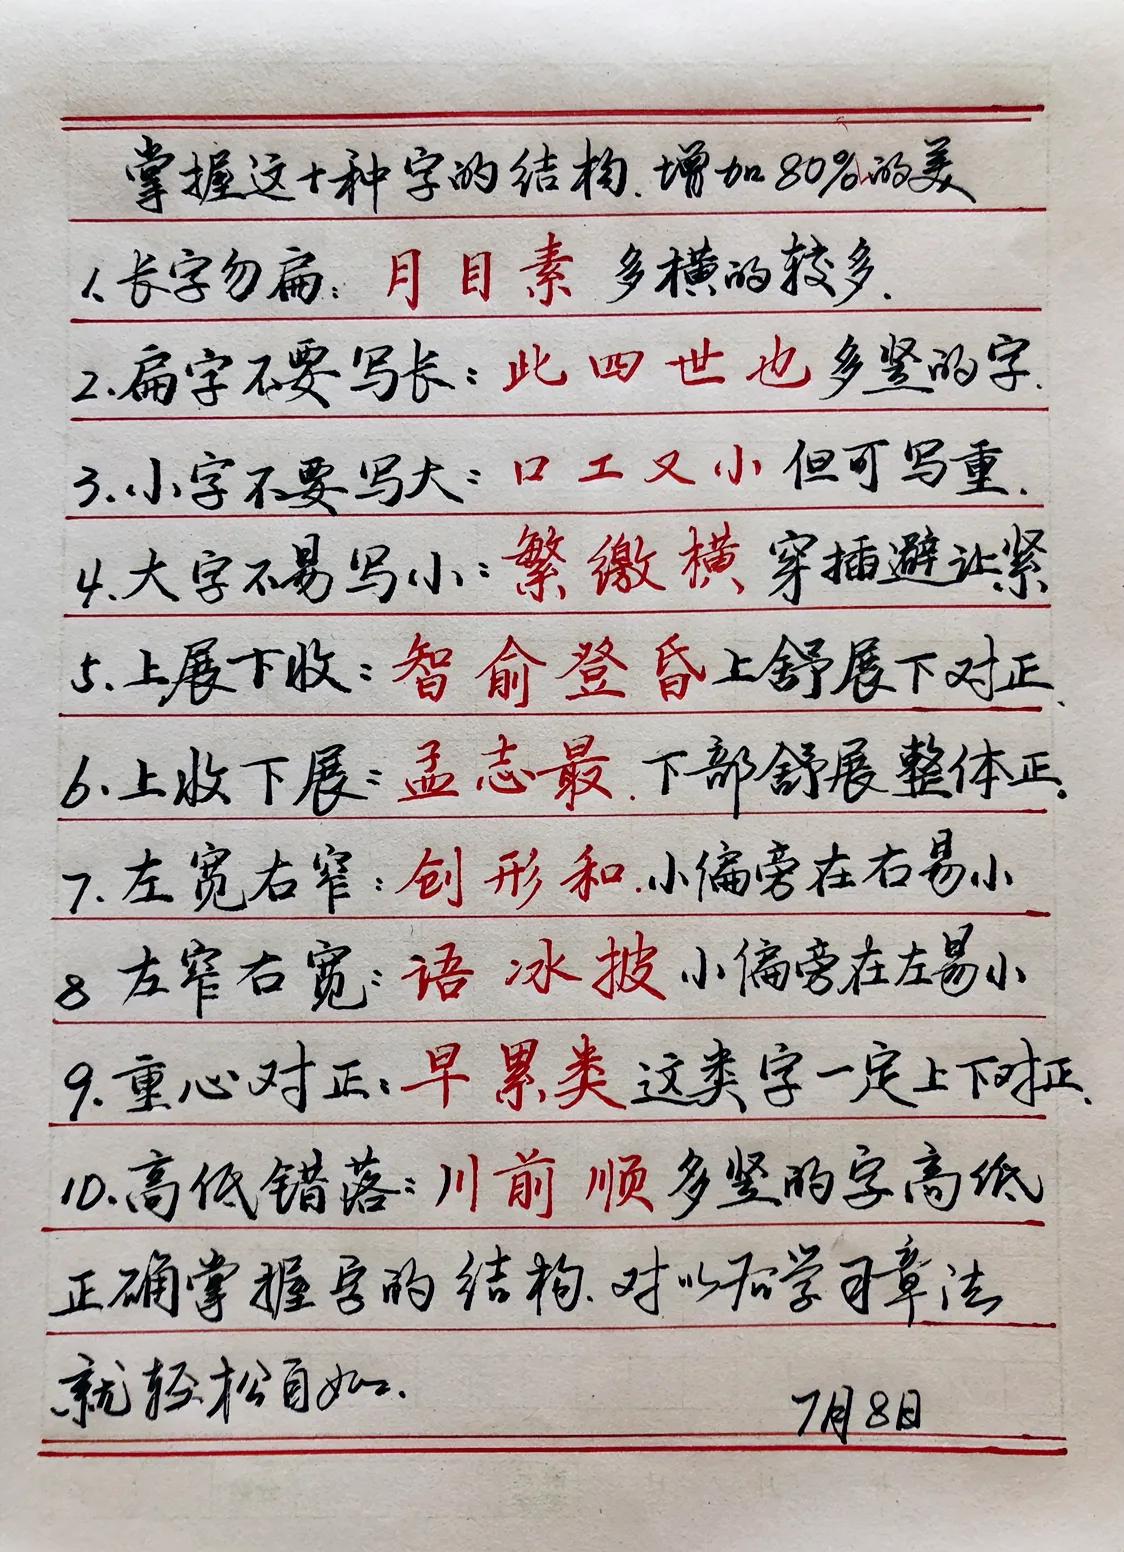 掌握这十种字的结构.增加80%的美
1、长字勿扁:月目素 多横的较多.
2.扁字不要写长:此四世也多竖的字.
3.小字不要写大:口工又小但可写重.
4.大字不易写小:繁缴横穿插避让紧
5.上展下收:智俞登昏上舒展下对正.
6.上收下展:孟志最.下部舒展整体正.
7.左宽右窄:创形和.小偏旁在右易小
8 左窄右宽:语冰披小偏旁在左易小
9.重心对正:早累类这类字一定上下对正.
10.高低错落:川前顺多竖的字高低
正确掌握字的结构.对以后学习章法
就轻松自如.
7月8日